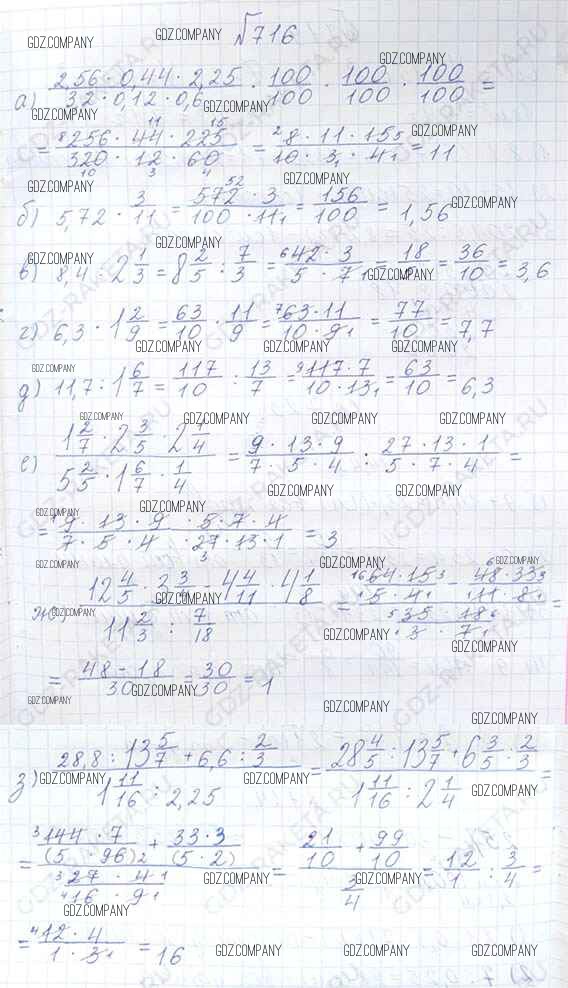 №716
а) (2,56 · 0,44 · 2,25)/(3,2 · 0,12 · 0,6) · 100/100 · 100/100 · 100/100 =
= (256 · 44 · 225)/(320 · 12 · 60) = (8 · 11 · 15)/(10 · 3 · 4) = 11
б) 5,72 · 3/11 = (572 · 3)/(100 · 11) = 156/100 = 1,56
в) 8,4 : 2 1/3 = 8 2/5 : 7/3 = (42 · 3)/(5 · 7) = 18/5 = 36/10 = 3,6
г) 6,3 · 1 2/9 = 63/10 · 11/9 = (63 · 11)/(10 · 9) = 77/10 = 7,7
д) 11,7 : 1 6/7 = 117/10 : 13/7 = (117 · 7)/(10 · 13) = 63/10 = 6,3
е) (1 2/7 · 2 3/5 · 2 1/4)/(5 2/5 · 1 6/7 · 1/4) = (9 · 13 · 9)/(7 · 5 · 4) : (27 · 13 · 1)/(5 · 7 · 4) =
= (9 · 13 · 9 · 5 · 7 · 4)/(7 · 5 · 4 · 27 · 13 · 1) = 3
ж) (12 4/5 · 3 3/4 - 4 4/11 · 4 1/8)/(11 2/3 : 7/18) = ((64 · 15)/(5 · 4) - (48 · 33)/(11 · 8))/((35 · 18)/(3 · 7)) =
= (48 - 18)/30 = 30/30 = 1
з) (28,8 : 13 5/7 + 6,6 : 2/3)/(1 11/16 : 2,25) = (28 4/5 : 13 5/7 + 6 3/5 : 2/3)/(1 11/16 : 2 1/4) =
= ((144 · 7)/(5 · 96) + (33 · 3)/(5 · 2))/((27 · 4)/(16 · 9)) = (21/10 + 99/10)/(3/4) = 12/1 : 3/4 =
= (12 · 4)/(1 · 3) = 16
GDZ.COMPANY
GDZ-RAKETA.RU